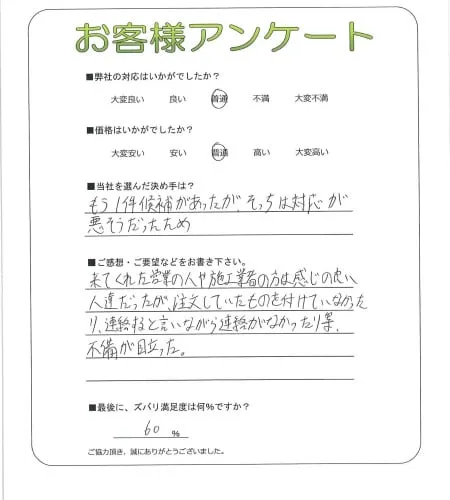 お客様アンケート
■弊社の対応はいかがでしたか?
大変良い 良い 普通 不満 大変不満
■価格はいかがでしたか?
大変安い 安い 普通 高い 大変高い
■当社を選んだ決め手は?
もう1件候補があったが、そっちは対応が
悪そうだったため
■ご感想・ご要望などをお書き下さい。
来てくれた営業の人や施工業者の方は感じの良い
人達だったが、注文していたものを付けていなかった
り、連絡すると言いながら連絡がなかったり等、
不備が目立った。
■最後に、ズバリ満足度は何%ですか?
60 %
ご協力頂き、誠にありがとうございました。